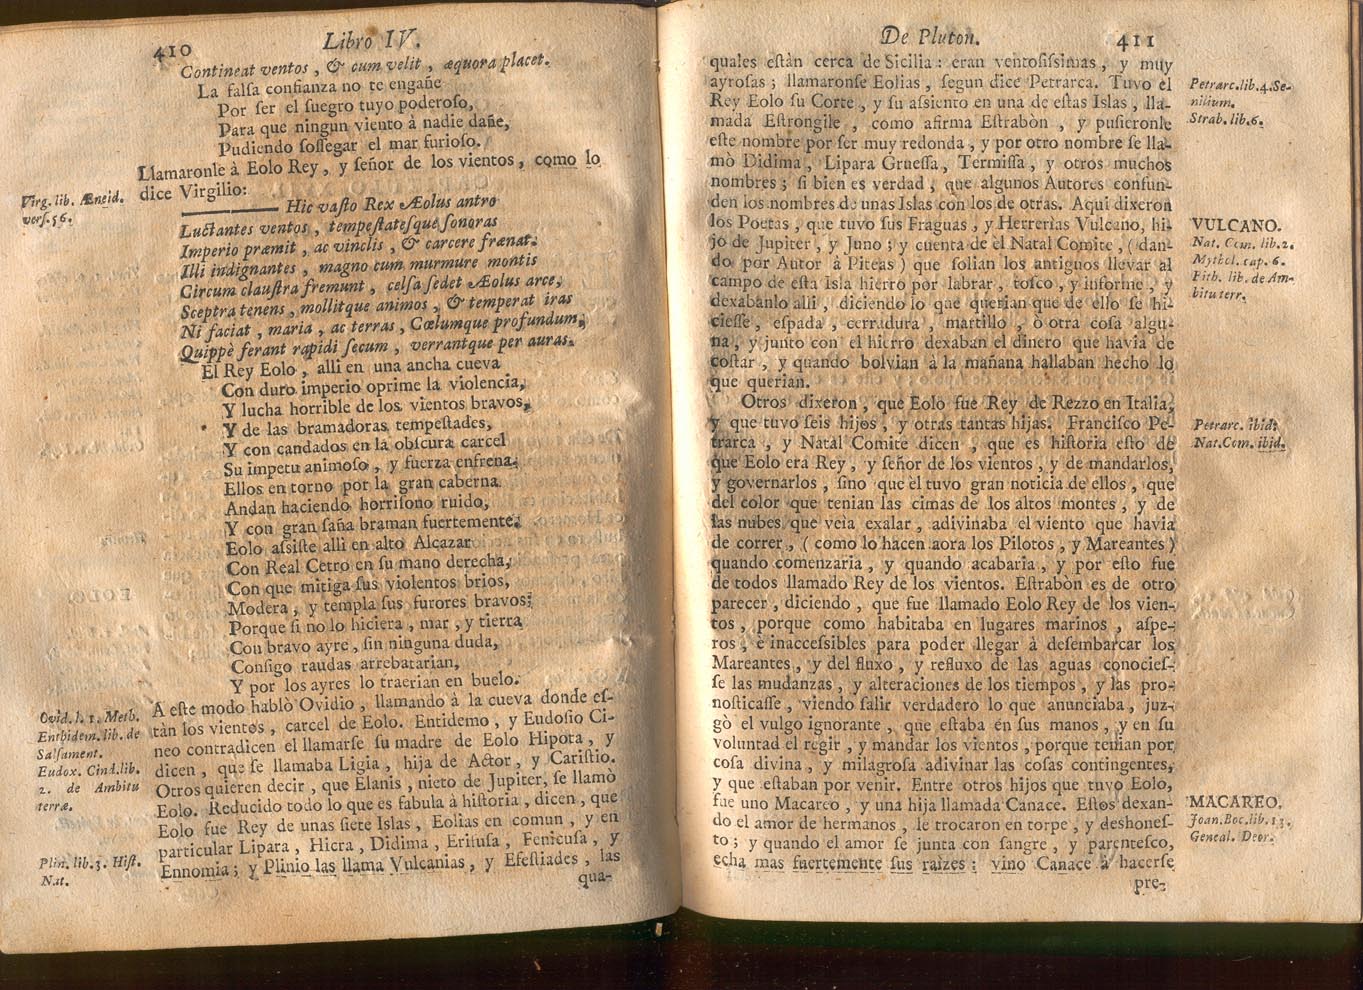 410 Libro IV.
Contineat ventos, & cum velit, æquora placet.
La falſa confianza no te engañe
Por ſer el ſuegro tuyo poderoſo,
Para que ningun viento à nadie dañe,
Pudiendo ſoſſegar el mar furioſo.
Llamaronle à Eolo Rey, y ſeñor de los vientos, como lo
dice Virgilio:
Virg. lib. Æneid.
verſ. 56.
Hic vaſto Rex Æolus antro
Luctantes ventos, tempeſtateſque ſonoras
Imperio præmit, ac vinclis, & carcere frænat.
Illi indignantes, magno cum murmure montis
Circum clauſtra fremunt, celſa ſedet Æolus arce,
Sceptra tenens, mollitque animos, & temperat iras
Ni faciat, maria, ac terras, Cœlumque profundum,
Quippè ferant rapidi ſecum, verrantque per auras.
El Rey Eolo, alli en una ancha cueva
Con duro imperio oprime la violencia,
Y lucha horrible de los vientos bravos,
Y de las bramadoras tempeſtades,
Y con candados en la obſcura carcel
Su impetu animoſo, y fuerza enfrena.
Ellos en torno por la gran caberna
Andan haciendo horriſono ruido,
Y con gran ſaña braman fuertemente.
Eolo aſsiſte alli en alto Alcazar
Con Real Cetro en ſu mano derecha,
Con que mitiga ſus violentos brios,
Modera, y templa ſus furores bravos:
Porque ſi no lo hiciera, mar, y tierra
Con bravo ayre, ſin ninguna duda,
Conſigo raudas arrebatarian,
Y por los ayres lo traerian en buelo.
A eſte modo hablò Ovidio, llamando à la cueva donde eſ-
tàn los vientos, carcel de Eolo. Entidemo, y Eudoſio Ci-
neo contradicen el llamarſe ſu madre de Eolo Hipota, y
dicen, que ſe llamaba Ligia, hija de Actor, y Cariſtio.
Otros quieren decir, que Elanis, nieto de Jupiter, ſe llamò
Eolo. Reducido todo lo que es fabula à hiſtoria, dicen, que
Eolo fue Rey de unas ſiete Islas, Eolias en comun, y en
particular Lipara, Hiera, Didima, Erifuſa, Fenicuſa, y
Ennomia; y Plinio las llama Vulcanias, y Efeſtiades, las
qua-
Ovid. l. 1. Meth.
Enthidem. lib. de
Salſament.
Eudox. Cind. lib.
2. de Ambitu
terræ.
Plin. lib. 3. Hiſt.
Nat.
De Pluton. 411
quales eſtàn cerca de Sicilia: eran ventoſiſsimas, y muy
ayroſas; llamaronſe Eolias, ſegun dice Petrarca. Tuvo el
Rey Eolo ſu Corte, y ſu aſsiento en una de eſtas Islas, lla-
mada Eſtrongile, como afirma Eſtrabòn, y puſieronle
eſte nombre por ſer muy redonda, y por otro nombre ſe lla-
mò Didima, Lipara Grueſſa, Termiſſa, y otros muchos
nombres; ſi bien es verdad, que algunos Autores confun-
den los nombres de unas Islas con los de otras. Aqui dixeron
los Poetas, que tuvo ſus Fraguas, y Herrerìas Vulcano, hi-
jo de Jupiter, y Juno; y cuenta de èl Natal Comite, (dan-
do por Autor à Piteas) que ſolian los antiguos llevar al
campo de eſta Isla hierro por labrar, toſco, y informe, y
dexabanlo alli, diciendo lo que querian que de ello ſe hi-
cieſſe, eſpada, cerradura, martillo, ò otra coſa algu-
na, y junto con el hierro dexaban el dinero que havia de
coſtar, y quando bolvian à la mañana hallaban hecho lo
que querian.
Otros dixeron, que Eolo fue Rey de Rezzo en Italia,
y que tuvo ſeis hijos, y otras tantas hijas. Franciſco Pe-
trarca, y Natal Comite dicen, que es hiſtoria eſto de
que Eolo era Rey, y ſeñor de los vientos, y de mandarlos,
y governarlos, ſino que el tuvo gran noticia de ellos, que
del color que tenian las cimas de los altos montes, y de
las nubes que veia exalar, adivinaba el viento que havia
de correr, (como lo hacen aora los Pilotos, y Mareantes)
quando comenzaria, y quando acabaria, y por eſto fue
de todos llamado Rey de los vientos. Eſtrabòn es de otro
parecer, diciendo, que fue llamado Eolo Rey de los vien-
tos, porque como habitaba en lugares marinos, aſpe-
ros, è inacceſsibles para poder llegar à deſembarcar los
Mareantes, y del fluxo, y refluxo de las aguas conocieſ-
ſe las mudanzas, y alteraciones de los tiempos, y las pro-
noſticaſſe, viendo ſalir verdadero lo que anunciaba, juz-
gò el vulgo ignorante, que eſtaba en ſus manos, y en ſu
voluntad el regir, y mandar los vientos, porque tenian por
coſa divina, y milagroſa adivinar las coſas contingentes,
y que eſtaban por venir. Entre otros hijos que tuvo Eolo,
fue uno Macareo, y una hija llamada Canace. Eſtos dexan-
do el amor de hermanos, le trocaron en torpe, y deshoneſ-
to; y quando el amor ſe junta con ſangre, y parenteſco,
echa mas fuertemente ſus raìzes: vino Canace à hacerſe
pre-
Petrarc. lib. 4. Se-
nilium.
Strab. lib. 6.
VULCANO.
Nat. Com. lib. 2.
Mythol. cap. 6.
Pith. lib. de Am-
bitu terr.
Petrarc. ibid.
Nat. Com. ibid.
MACAREO.
Joan. Boc. lib. 13.
Geneal. Deor.